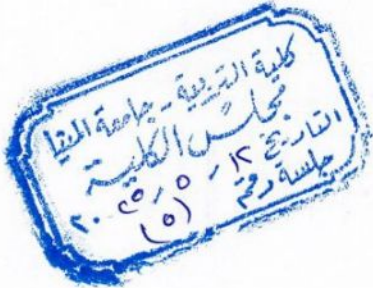 كلية التربية - جامعة المنيا
مجلس الكلية
التاريخ ١٢ - ٥ - ٢٠٢٥
جلسة رقم (٥)